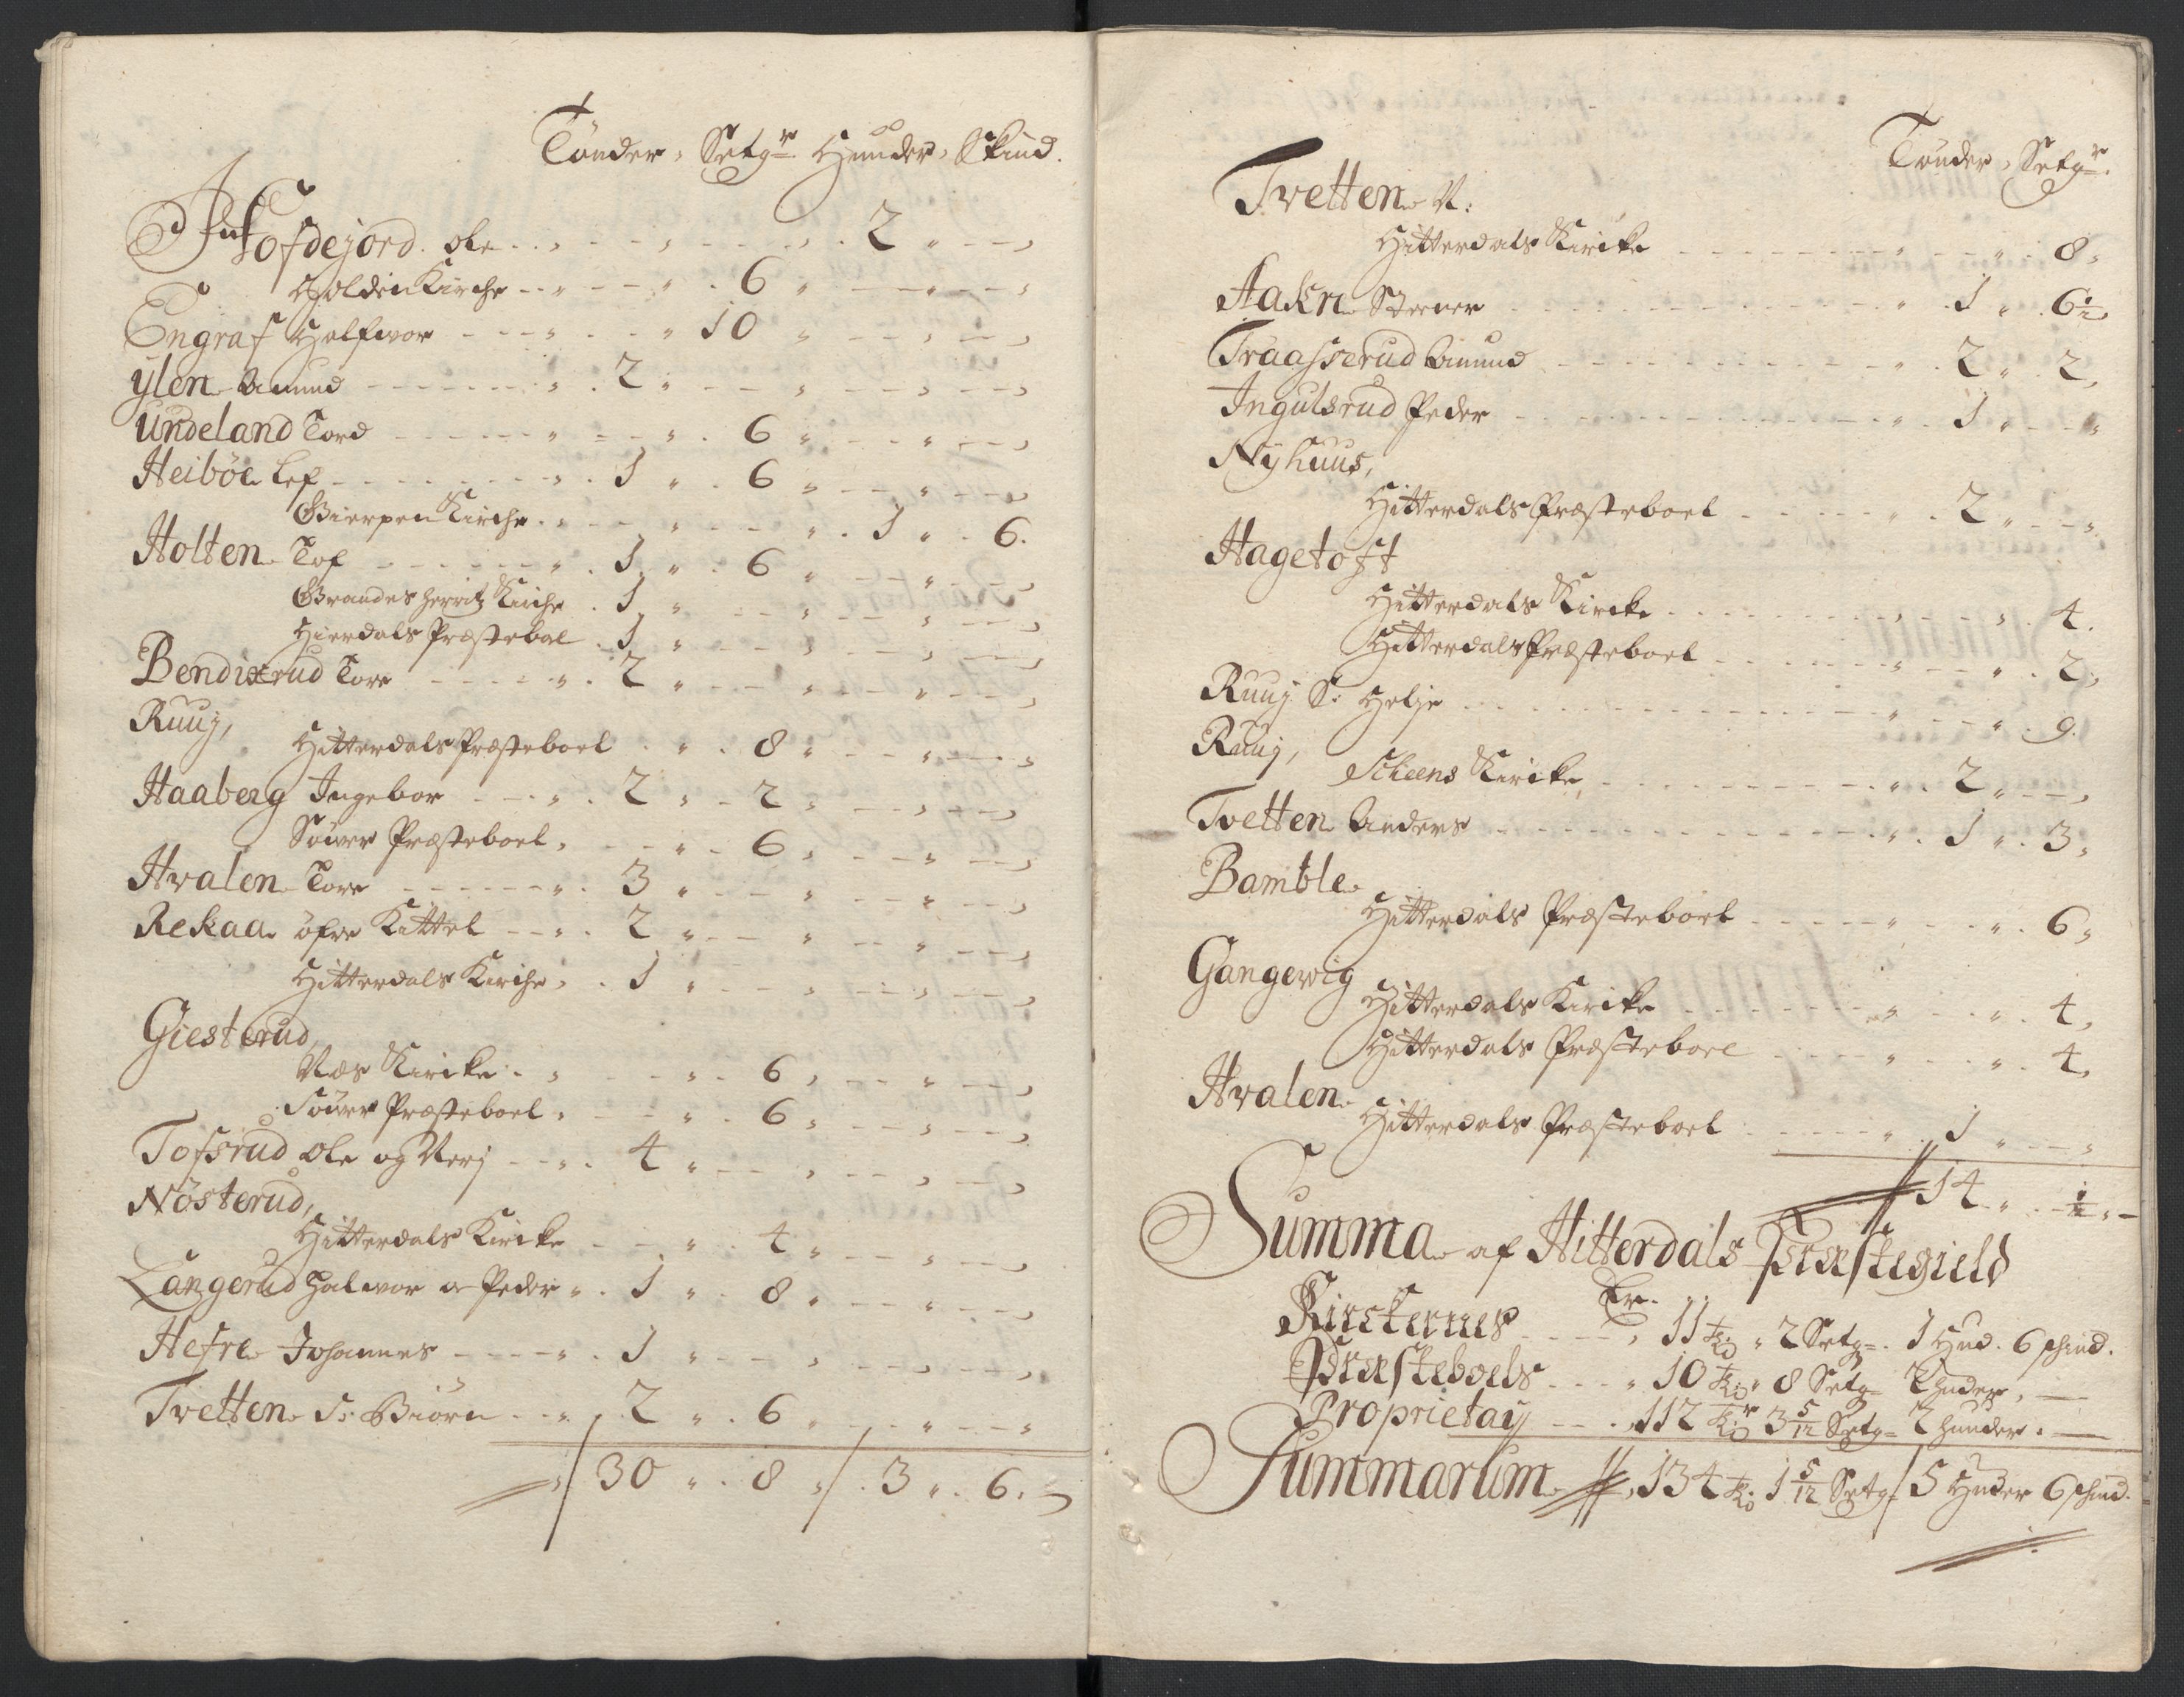 Tønder, Setgr Huuder, Skind.
Hofdejord. Ole . . . 2
Holden Kirche . . 6
Engraf Halfwor . . 10
Ylen Amund . . 2
Undeland Tord . . 6
Heibøe Lef . . 1 . 6
Gierpen Kirche . . 1 . 6.
Holten Tof . . 1 . 6
Brandes herritz Kirche . 1
Hierdals Præstebol . 1
Bendixrud Tore . . 2
Ruuj,
Hitterdals Præsteboel . . 8
Haaberg Ingebor . . 2 . 2
Souer Præsteboel . . 6
Hvalen Tore . . 3
Rekaa øfre Kittel . . 2
Hitterdals Kirche . . 1
Giesterud,
Næs Kircke . . 6
Souer Præsteboel . . 6
Tofsrud Ole og . . 4
Nøsterud,
Hitterdals Kircke . . 4
Langerud Halwor o Peder . 1 . 8
Hefre Johannes . . 1
Tvetten S: Biørn . . 2 . 6
30 . 8 . 3 . 6.
Tønder, Setgr.
Tvetten N:
Hitterdals Kircke . . 8
Aasen Steener . . 1 . 6½
Traasserud Amund . . 2 . 2
Ingulsrud Peder . . 1
Nyhuus,
Hitterdals Præsteboel . . 2
Hagetoft
Hitterdals Kircke . . 4.
Hitterdals Præsteboel . . 2
Ruuj S: Helje . . 9.
Ruuj, Scheens Kircke, . . 2
Tvetten Anders . . 1 . 3
Bamble
Hitterdals Præsteboel . . 6
Gangewig
Hitterdals Kircke . . 4
Hitterdals Præsteboel . . 4
Hvalen
Hitterdals Præsteboel . . 1
14 . ½
Summa af Hitterdals Præstegield
Kirckernes . . 11 Tr 2 Setgr. 1 Hud. 6 skind.
Præsteboels . . 10 8 Setgr 2 huder,
Proprietay . . 112 3 5/12 Setgr 2 huuder.
Summarum 134 1 5/12 Setgr 5 Huder 6 skind.